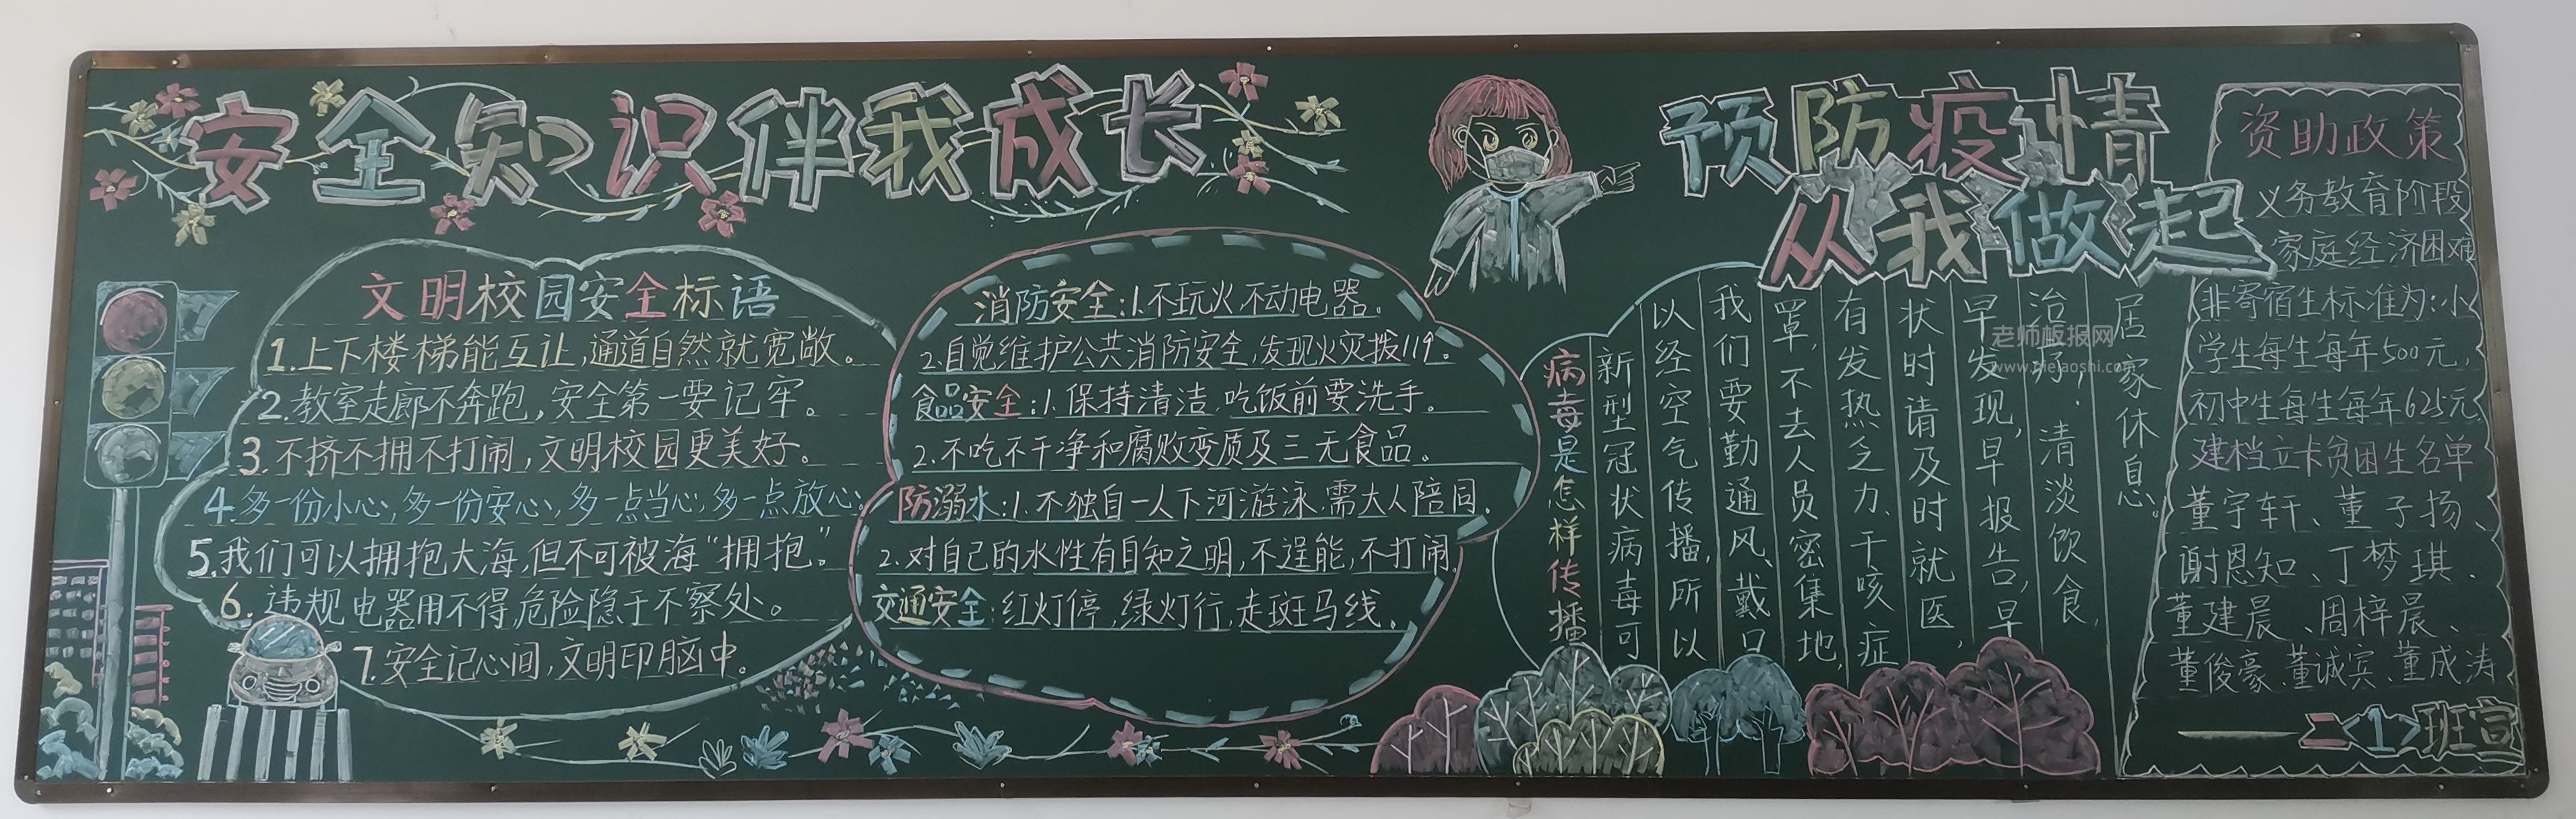 安全知识伴我成长
文明校园安全标语
1.上下楼梯能互让,通道自然就宽敞。
2.教室走廊不奔跑,安全第一要记牢。
3.不挤不拥不打闹,文明校园更美好。
4.多一份小心,多一份安心,多一点当心,多一点放心。
5.我们可以拥抱大海,但不可被海“拥抱”。
6.违规电器用不得,危险隐于不察处。
7.安全记心间,文明印脑中。
消防安全:1.不玩火、不动电器。
2.自觉维护公共消防安全,发现火灾拨119。
食品安全:1.保持清洁,吃饭前要洗手。
2.不吃不干净和腐败变质及三无食品。
防溺水:1.不独自一人下河游泳,需大人陪同。
2.对自己的水性有自知之明,不逞能,不打闹。
交通安全:红灯停,绿灯行,走斑马线。
预防疫情
从我做起
病毒是怎样传播
新型冠状病毒可
以经空气传播,所以
我们要勤通风、戴口
罩,不去人员密集地,
有发热乏力、干咳症
状时请及时就医,
早发现,早报告,早
治疗!清淡饮食,
居家休息。
资助政策
义务教育阶段
家庭经济困难
非寄宿生标准为:小
学生每生每年500元,
初中生每生每年625元
建档立卡贫困生名单
董宇轩、董子扬、
谢恩知、丁梦琪、
董建晨、周梓晨、
董俊豪、董诚宾、董成涛
——二<1>班宣
老师板报网